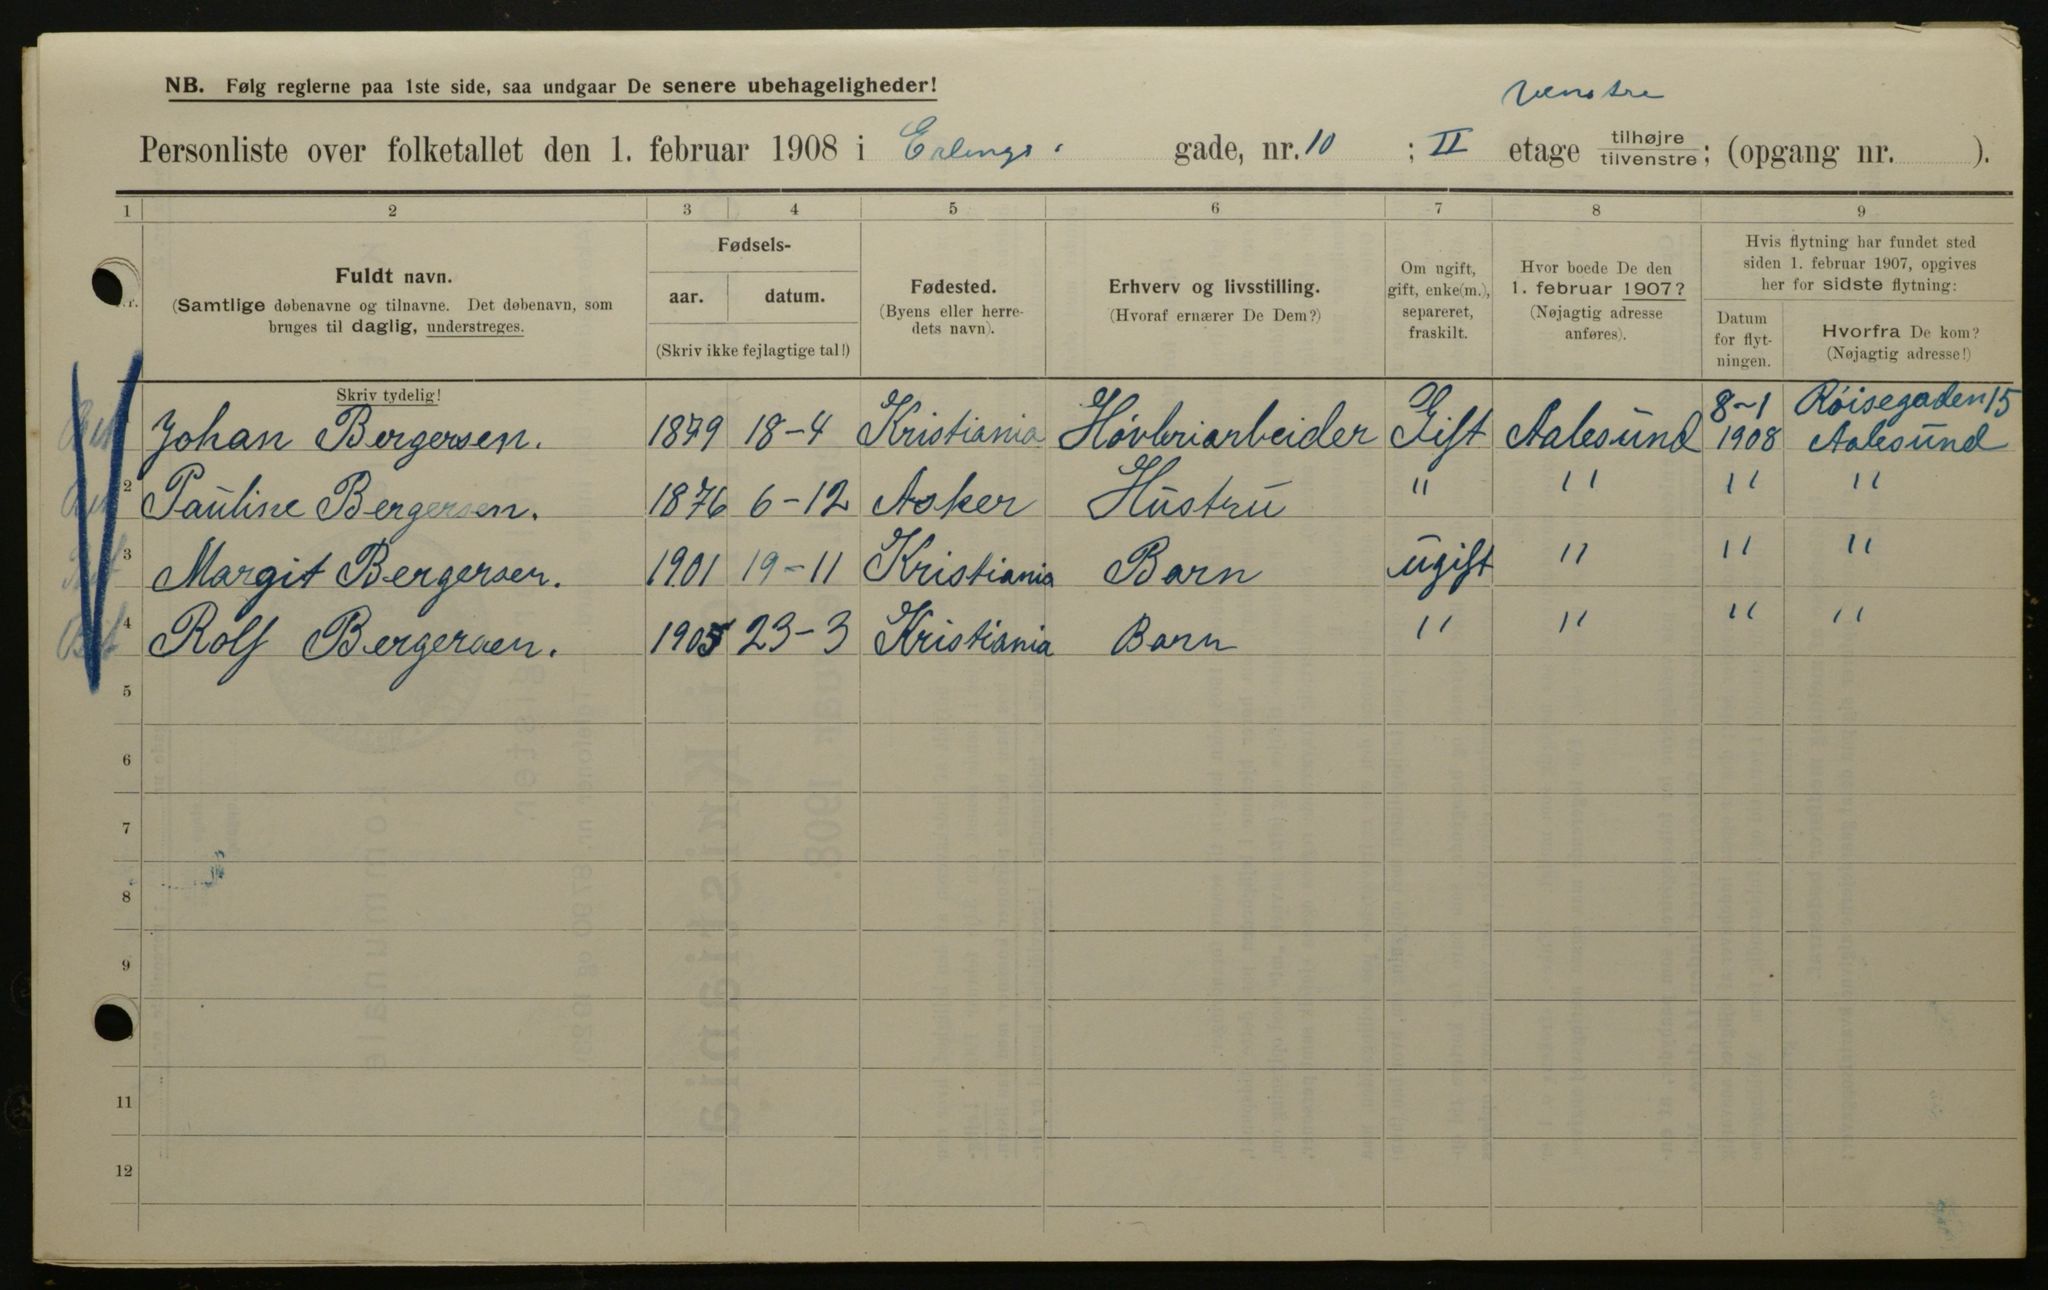 NB. Følg reglerne paa 1ste side, saa undgaar De senere ubehageligheder!
Venstre
Personliste over folketallet den 1. februar 1908 i Erlings gade, nr. 10 ; II etage tilhøjre / tilvenstre ; (opgang nr. ).
1 2 3 4 5 6 7 8 9
Nr.
Fuldt navn.
(Samtlige døbenavne og tilnavne. Det døbenavn, som
bruges til daglig, understreges.
Skriv tydelig!
Fødsels-
aar. datum.
(Skriv ikke fejlagtige tal!)
Fødested.
(Byens eller herre-
dets navn).
Erhverv og livsstilling.
(Hvoraf ernærer De Dem?)
Om ugift,
gift, enke(m.),
separeret,
fraskilt.
Hvor boede De den
1. februar 1907?
(Nøjagtig adresse
anføres).
Hvis flytning har fundet sted
siden 1. februar 1907, opgives
her for sidste flytning:
Datum
for flyt-
ningen.
Hvorfra De kom?
(Nøjagtig adresse!)
8-1 Röisegaden 15
1 Johan Bergersen. 1879 18-4 Kristiania Høvleriarbeider Gift Aalesund 1908 Aalesund
2 Pauline Bergersen. 1876 6-12 Asker Hustru " " " "
3 Margit Bergersen. 1901 19-11 Kristiania Barn ugift " " "
4 Rolf Bergersen. 1905 23-3 Kristiania Barn " " " "
5
6
7
8
9
11
12